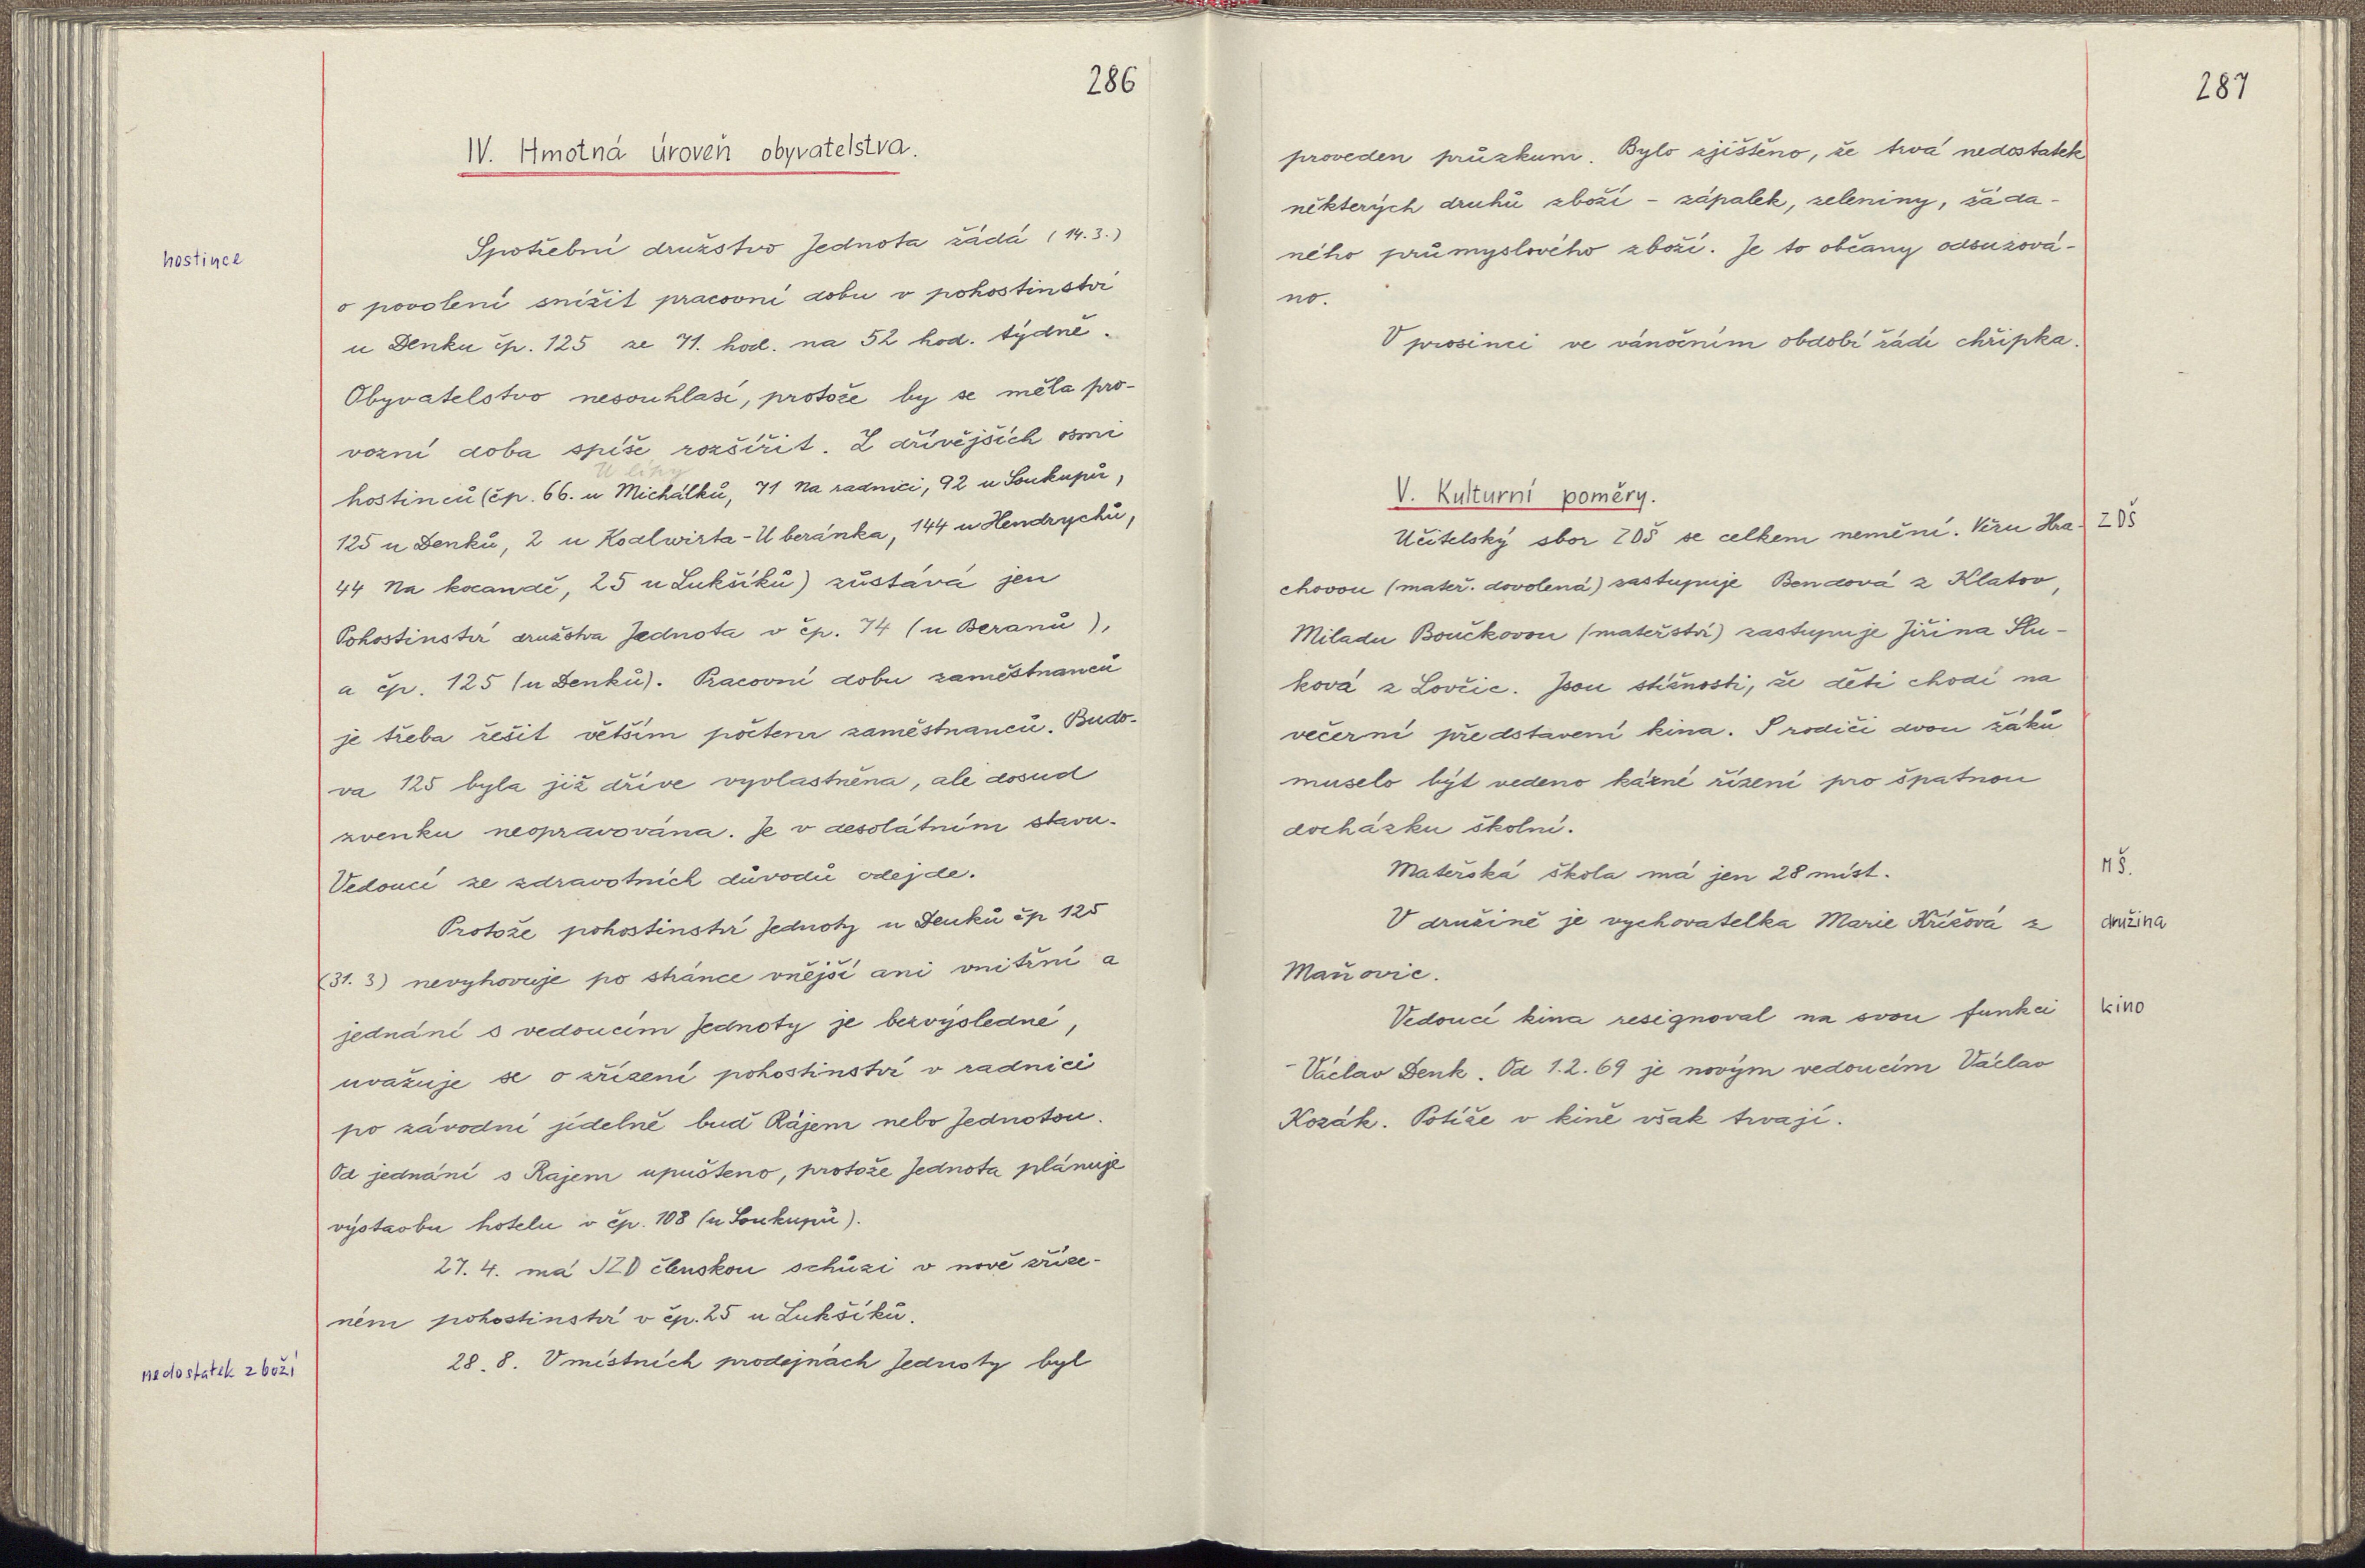 286
IV. Hmotná úroveň obyvatelstva.
hostince
Spotřební družstvo Jednota žádá (14.3.)
o povolení snížit pracovní dobu v pohostinství
u Denku čp. 125 ze 71. hod. na 52 hod. týdně.
Obyvatelstvo nesouhlasí, protože by se měla pro-
vozní doba spíše rozšířit. Z dřívějších osmi
U lípy
hostinců (čp. 66. u Michálků, 71 Na radnici, 92 u Soukupů,
125 u Denků, 2 u Kodlwirta - U beránka, 144 u Hendrychů,
44 Na kocandě, 25 u Lukšíků) zůstává jen
Pohostinství družstva Jednota v čp. 74 (u Beranů),
a čp. 125 (u Denků). Pracovní dobu zaměstnanců
je třeba řešit větším počtem zaměstnanců. Budo-
va 125 byla již dříve vyvlastněna, ale dosud
zvenku neopravována. Je v desolátním stavu.
Vedoucí ze zdravotních důvodů odejde.
Protože pohostinství Jednoty u Denků čp 125
(31. 3) nevyhovuje po stránce vnější ani vnitřní a
jednání s vedoucím Jednoty je bezvýsledné,
uvažuje se o zřízení pohostinství v radnici
po závodní jídelně buď Rájem nebo Jednotou.
Od jednání s Rajem upuštěno, protože Jednota plánuje
výstavbu hotelu v čp. 108 (u Soukupů).
27. 4. má JZD členskou schůzi v nově zříze-
ném pohostinství v čp. 25 u Lukšíků.
nedostatek zboží
28. 8. V místních prodejnách Jednoty byl
287
proveden průzkum. Bylo zjištěno, že trvá nedostatek
některých druhů zboží - zápalek, zeleniny, žáda-
ného průmyslového zboží. Je to občany odsuzová-
no.
V prosinci ve vánočním období řádí chřipka.
V. Kulturní poměry.
Učitelský sbor ZDŠ se celkem nemění. Věru Hra-
ZDŠ
chovou (mateř. dovolená) zastupuje Bendová z Klatov,
Miladu Boučkovou (mateřství) zastupuje Jiřina Slu-
ková z Lovčic. Jsou stížnosti, že děti chodí na
večerní představení kina. S rodiči dvou žáků
muselo být vedeno kárné řízení pro špatnou
docházku školní.
Mateřská škola má jen 28 míst.
MŠ.
V družině je vychovatelka Marie Křížová z
družina
Maňovic.
Vedoucí kina resignoval na svou funkci
kino
- Václav Denk. Od 1.2.69 je novým vedoucím Václav
Kozák. Potíže v kině však trvají.